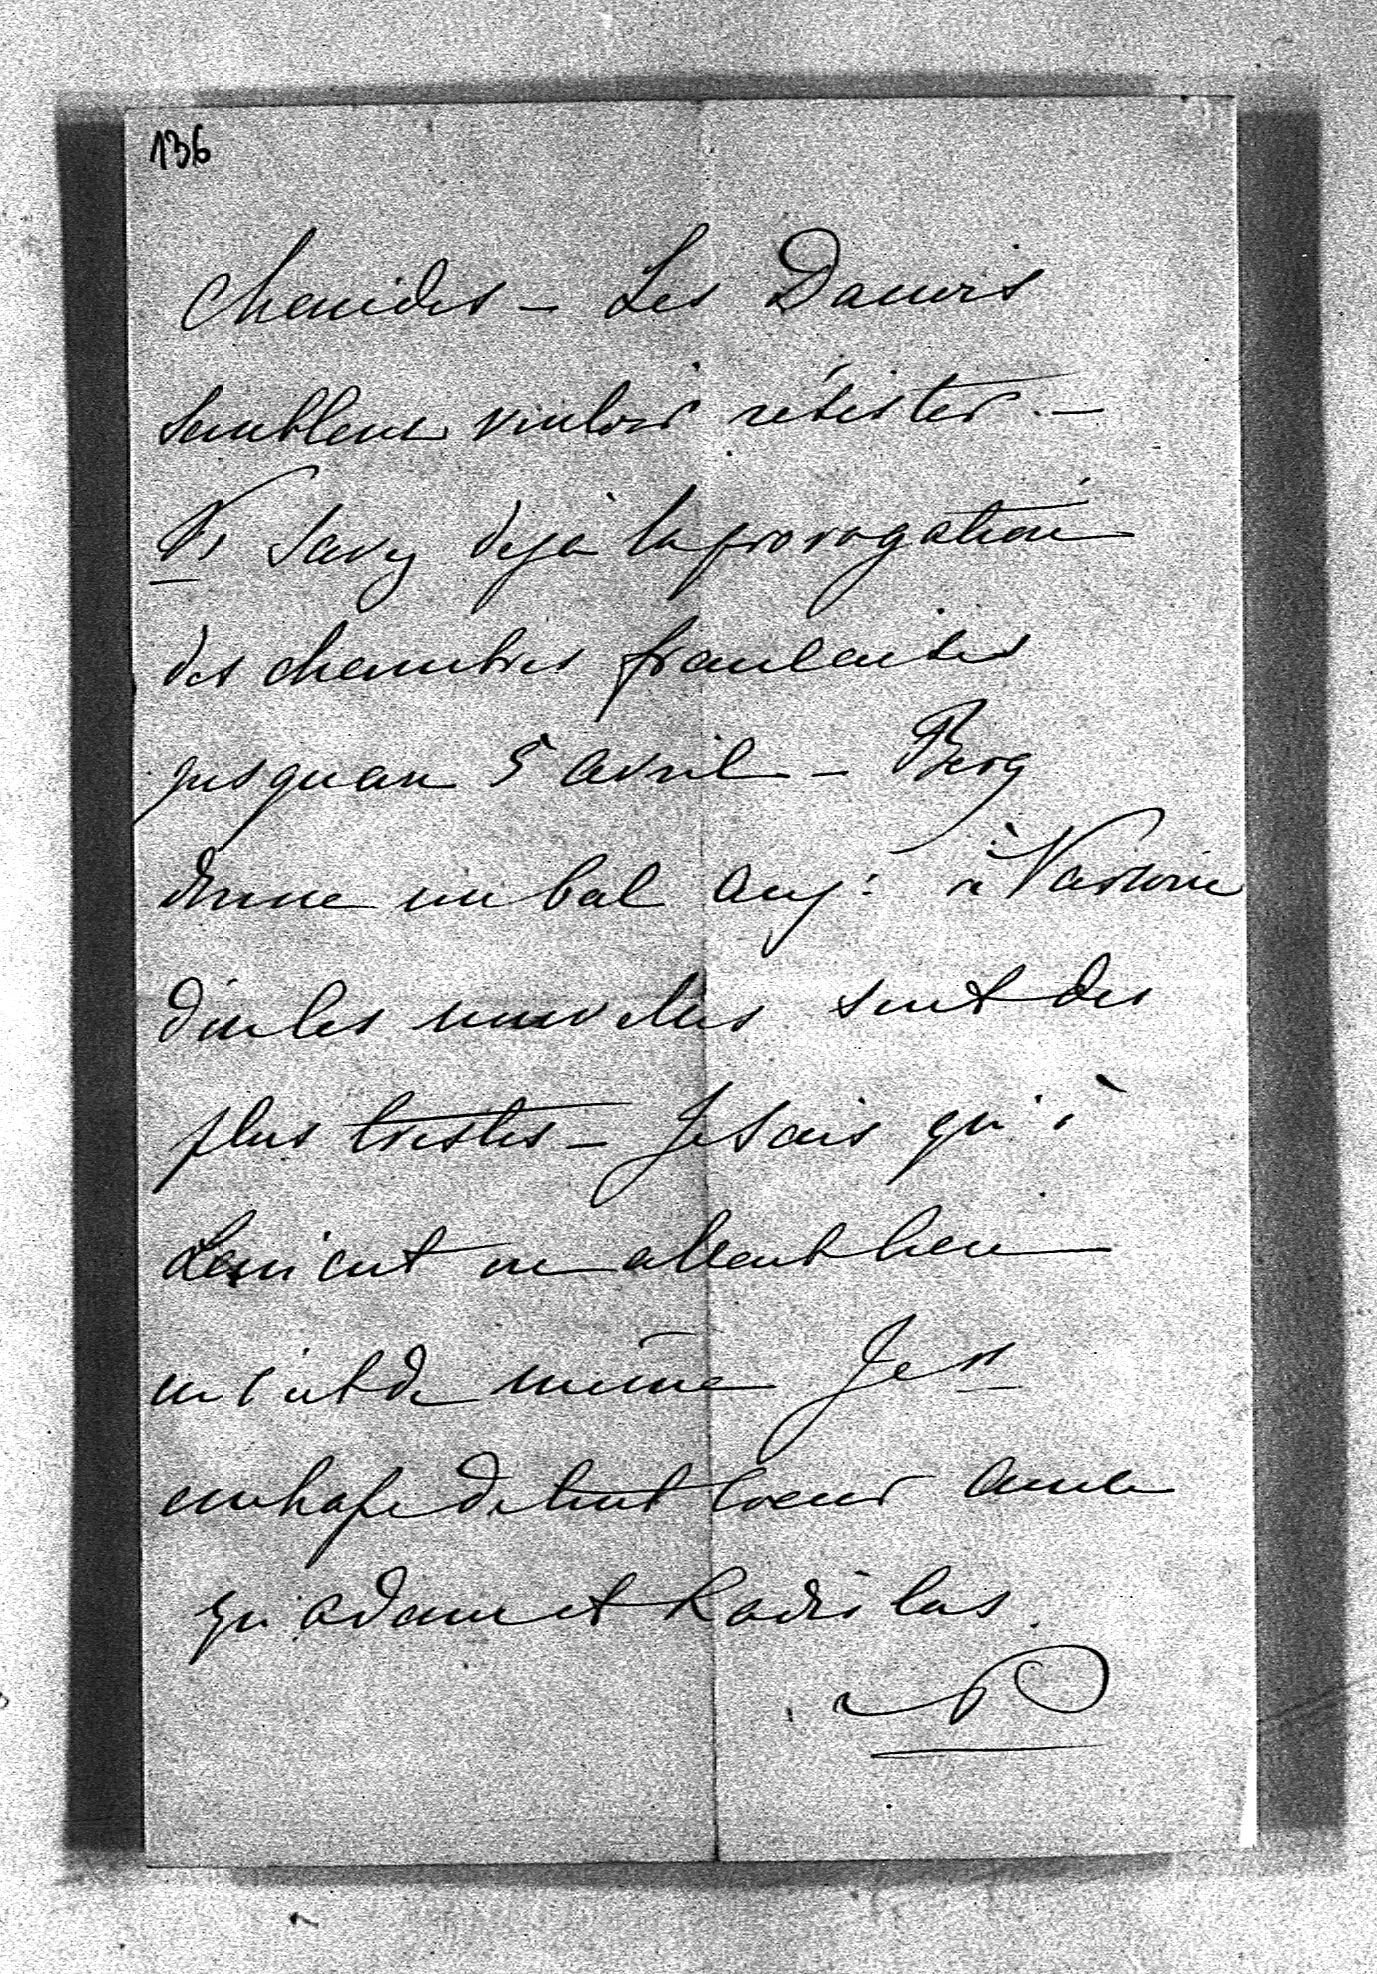 136
chemides - Les Danois
semblent vouloir résister. -
Vs savez déjà la prorogation
des chambres francaises
jusquau 5 avril - Berg
donne un bal auj: à Varsovie
d'ou les nouvelles sont des
plus tristes - Je sais qu'à
on allait bien
même Je vs
de tout coeur ainsi
qu'adam et Ladislas.